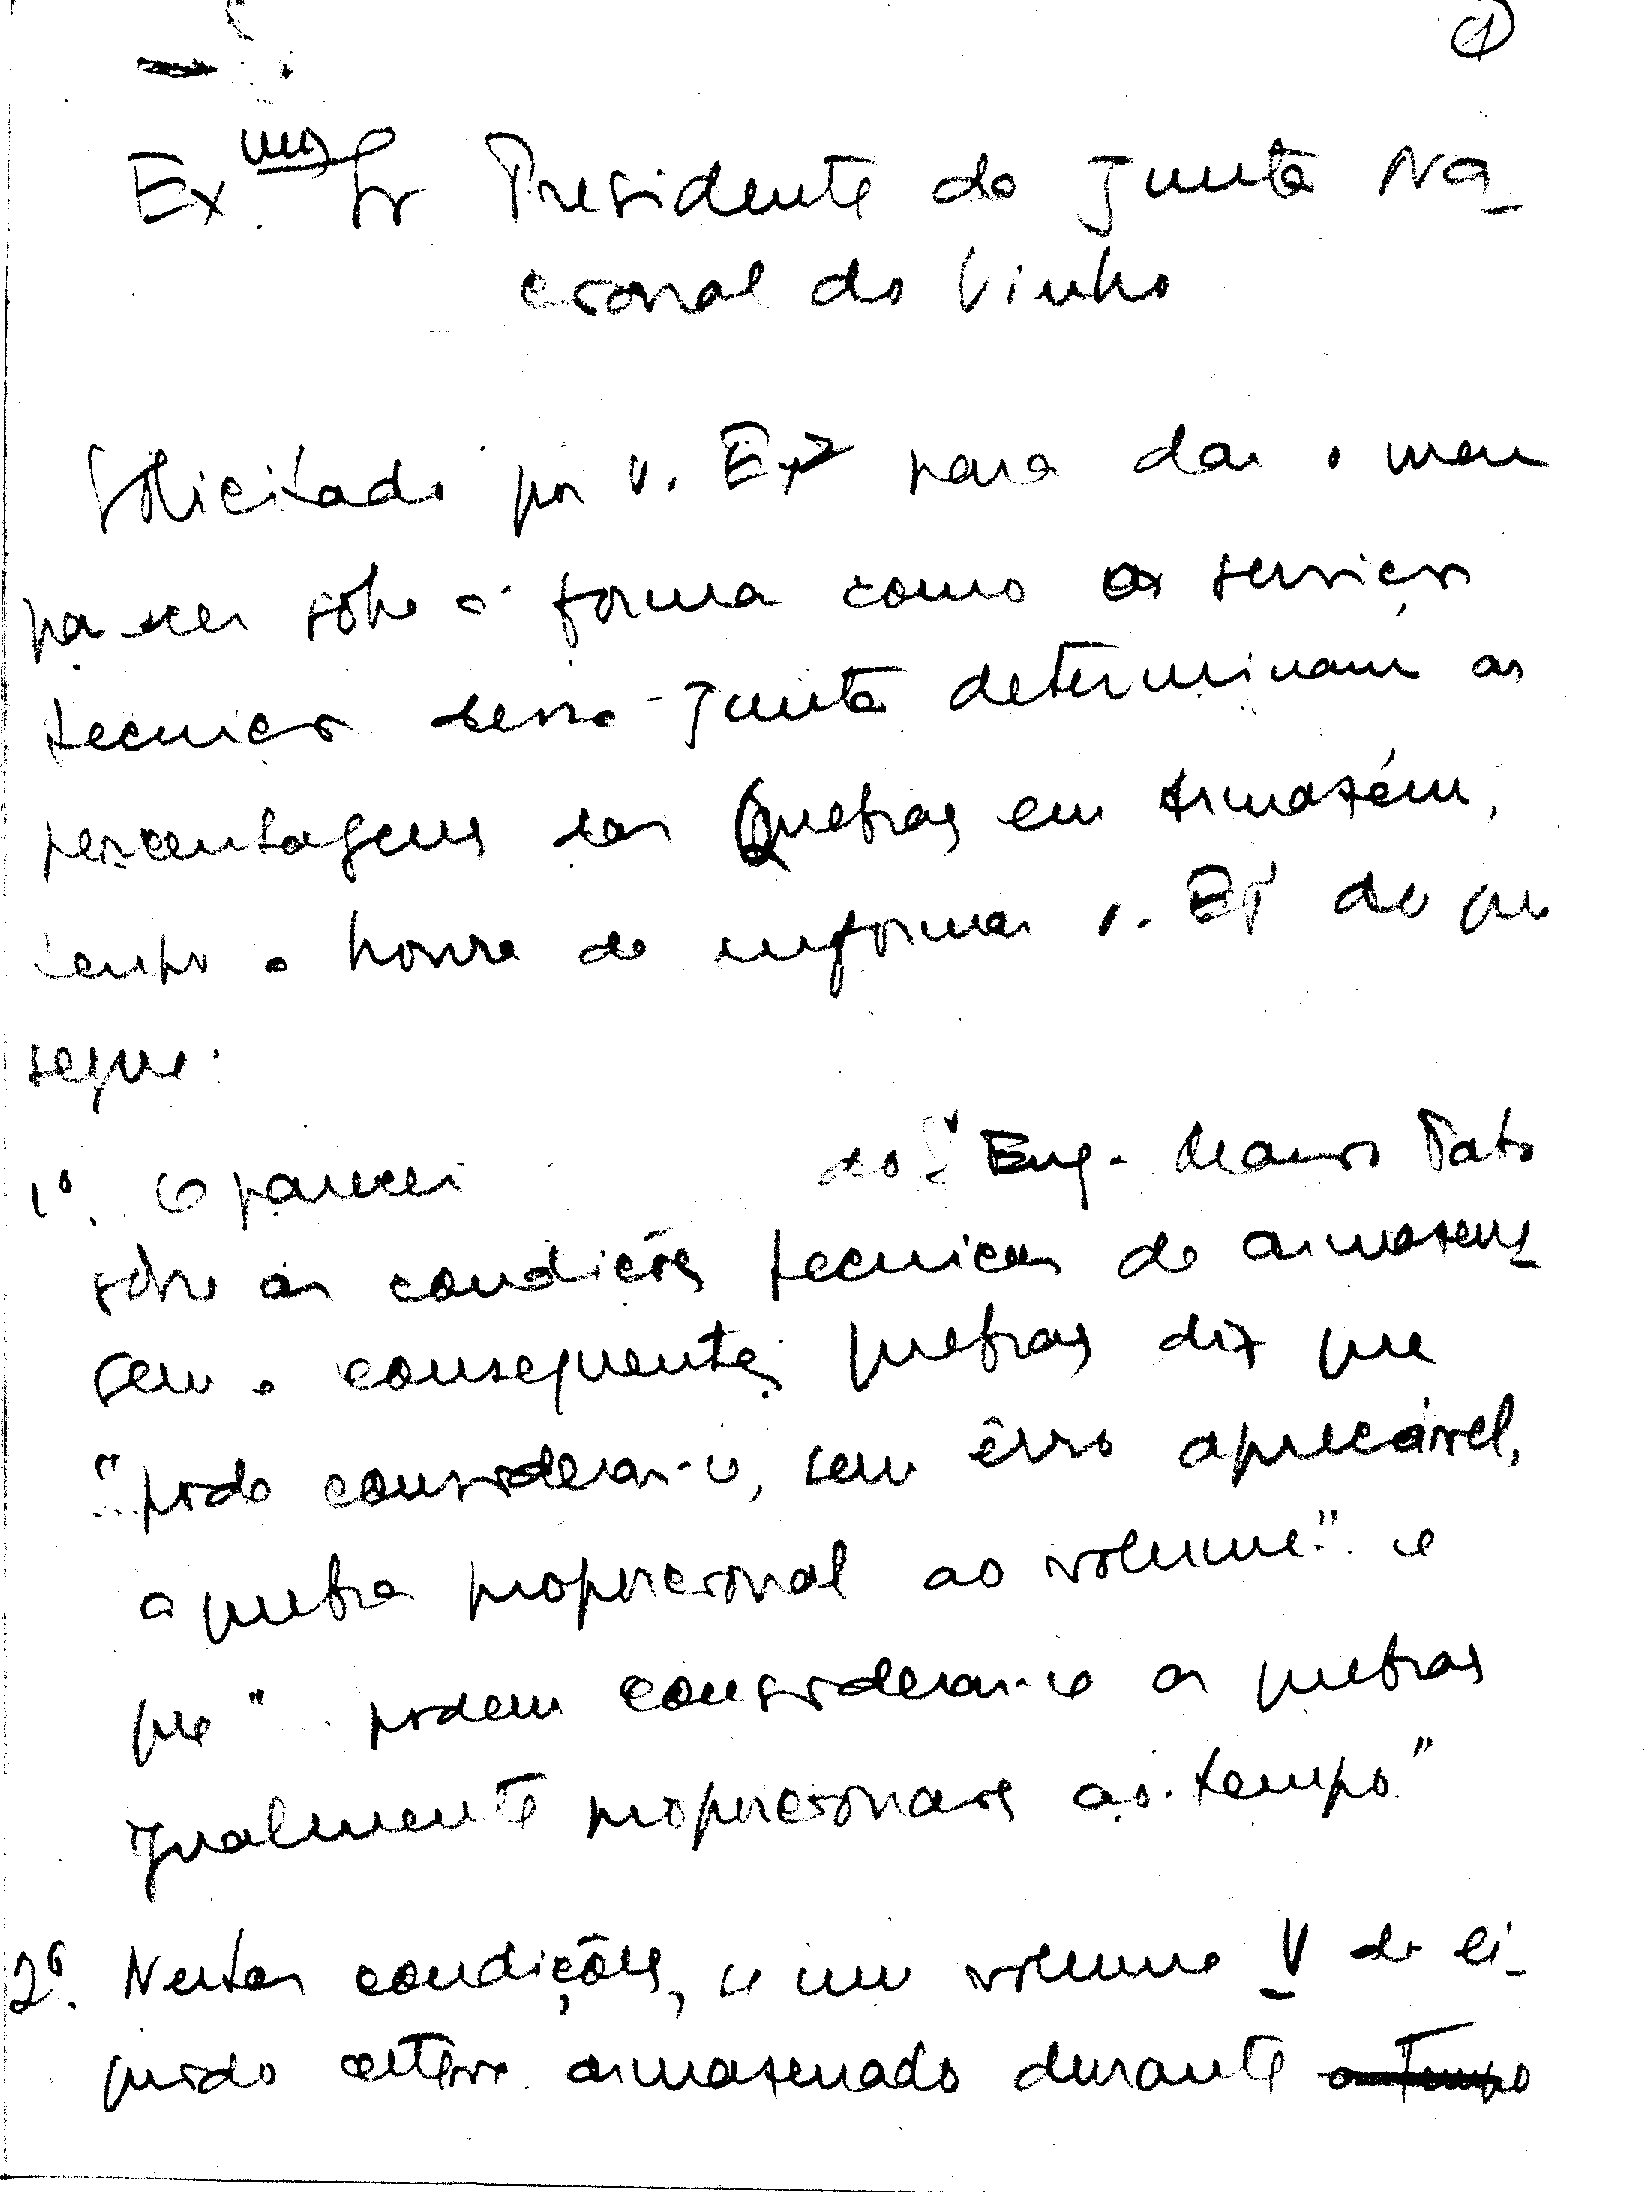 1
Exmo Sr Presidente da Junta Na-
cional do Vinho
Solicitado por V. Exa para dar o meu
parecer sôbre a forma como os serviços
tecnicos dessa Junta determinam as
percentagens das Quebras em Armazém,
tenho a honra de informar V. Exa do que
segue:
1º. O parecer do Sr Eng. Mauro Pato
sôbre as condicões tecnicas de armazena-
gem e consequentes quebras diz que
"... pode considerar-se, sem êrro apreciável,
a quebra proporcional ao volume" e
que "... podem considerar-se as quebras
igualmente proporcionais ao tempo"
2º. Nestas condições, se um volume V de li-
quido esteve armazenado durante o tempo